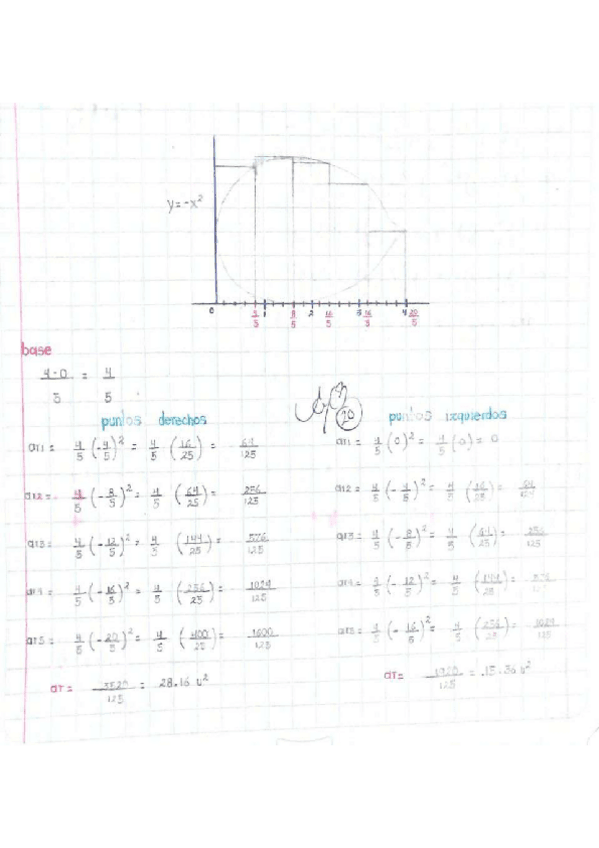 y=-x²
0 4/5 1 8/5 2 12/5 3 16/5 4 20/5
base
4-0/5 = 4/5
puntos derechos
ar1 = 4/5 (-4/5)² = 4/5 (16/25) = 64/125
ar2 = 4/5 (-8/5)² = 4/5 (64/25) = 256/125
ar3 = 4/5 (-12/5)² = 4/5 (144/25) = 576/125
ar4 = 4/5 (-16/5)² = 4/5 (-256/25) = 1024/125
ar5 = 4/5 (-20/5)² = 4/5 (400/25) = 1600/125
aT = 3520/125 = 28.16 u²
20
puntos izquierdos
ar1 = 4/5 (0)² = 4/5 (0) = 0
ar2 = 4/5 (-4/5)² = 4/5 (16/25) = 64/125
ar3 = 4/5 (-8/5)² = 4/5 (64/25) = 256/125
ar4 = 4/5 (-12/5)² = 4/5 (144/25) = 576/125
ar5 = 4/5 (-16/5)² = 4/5 (256/25) = 1024/125
aT = 1920/125 = 15.36 u²